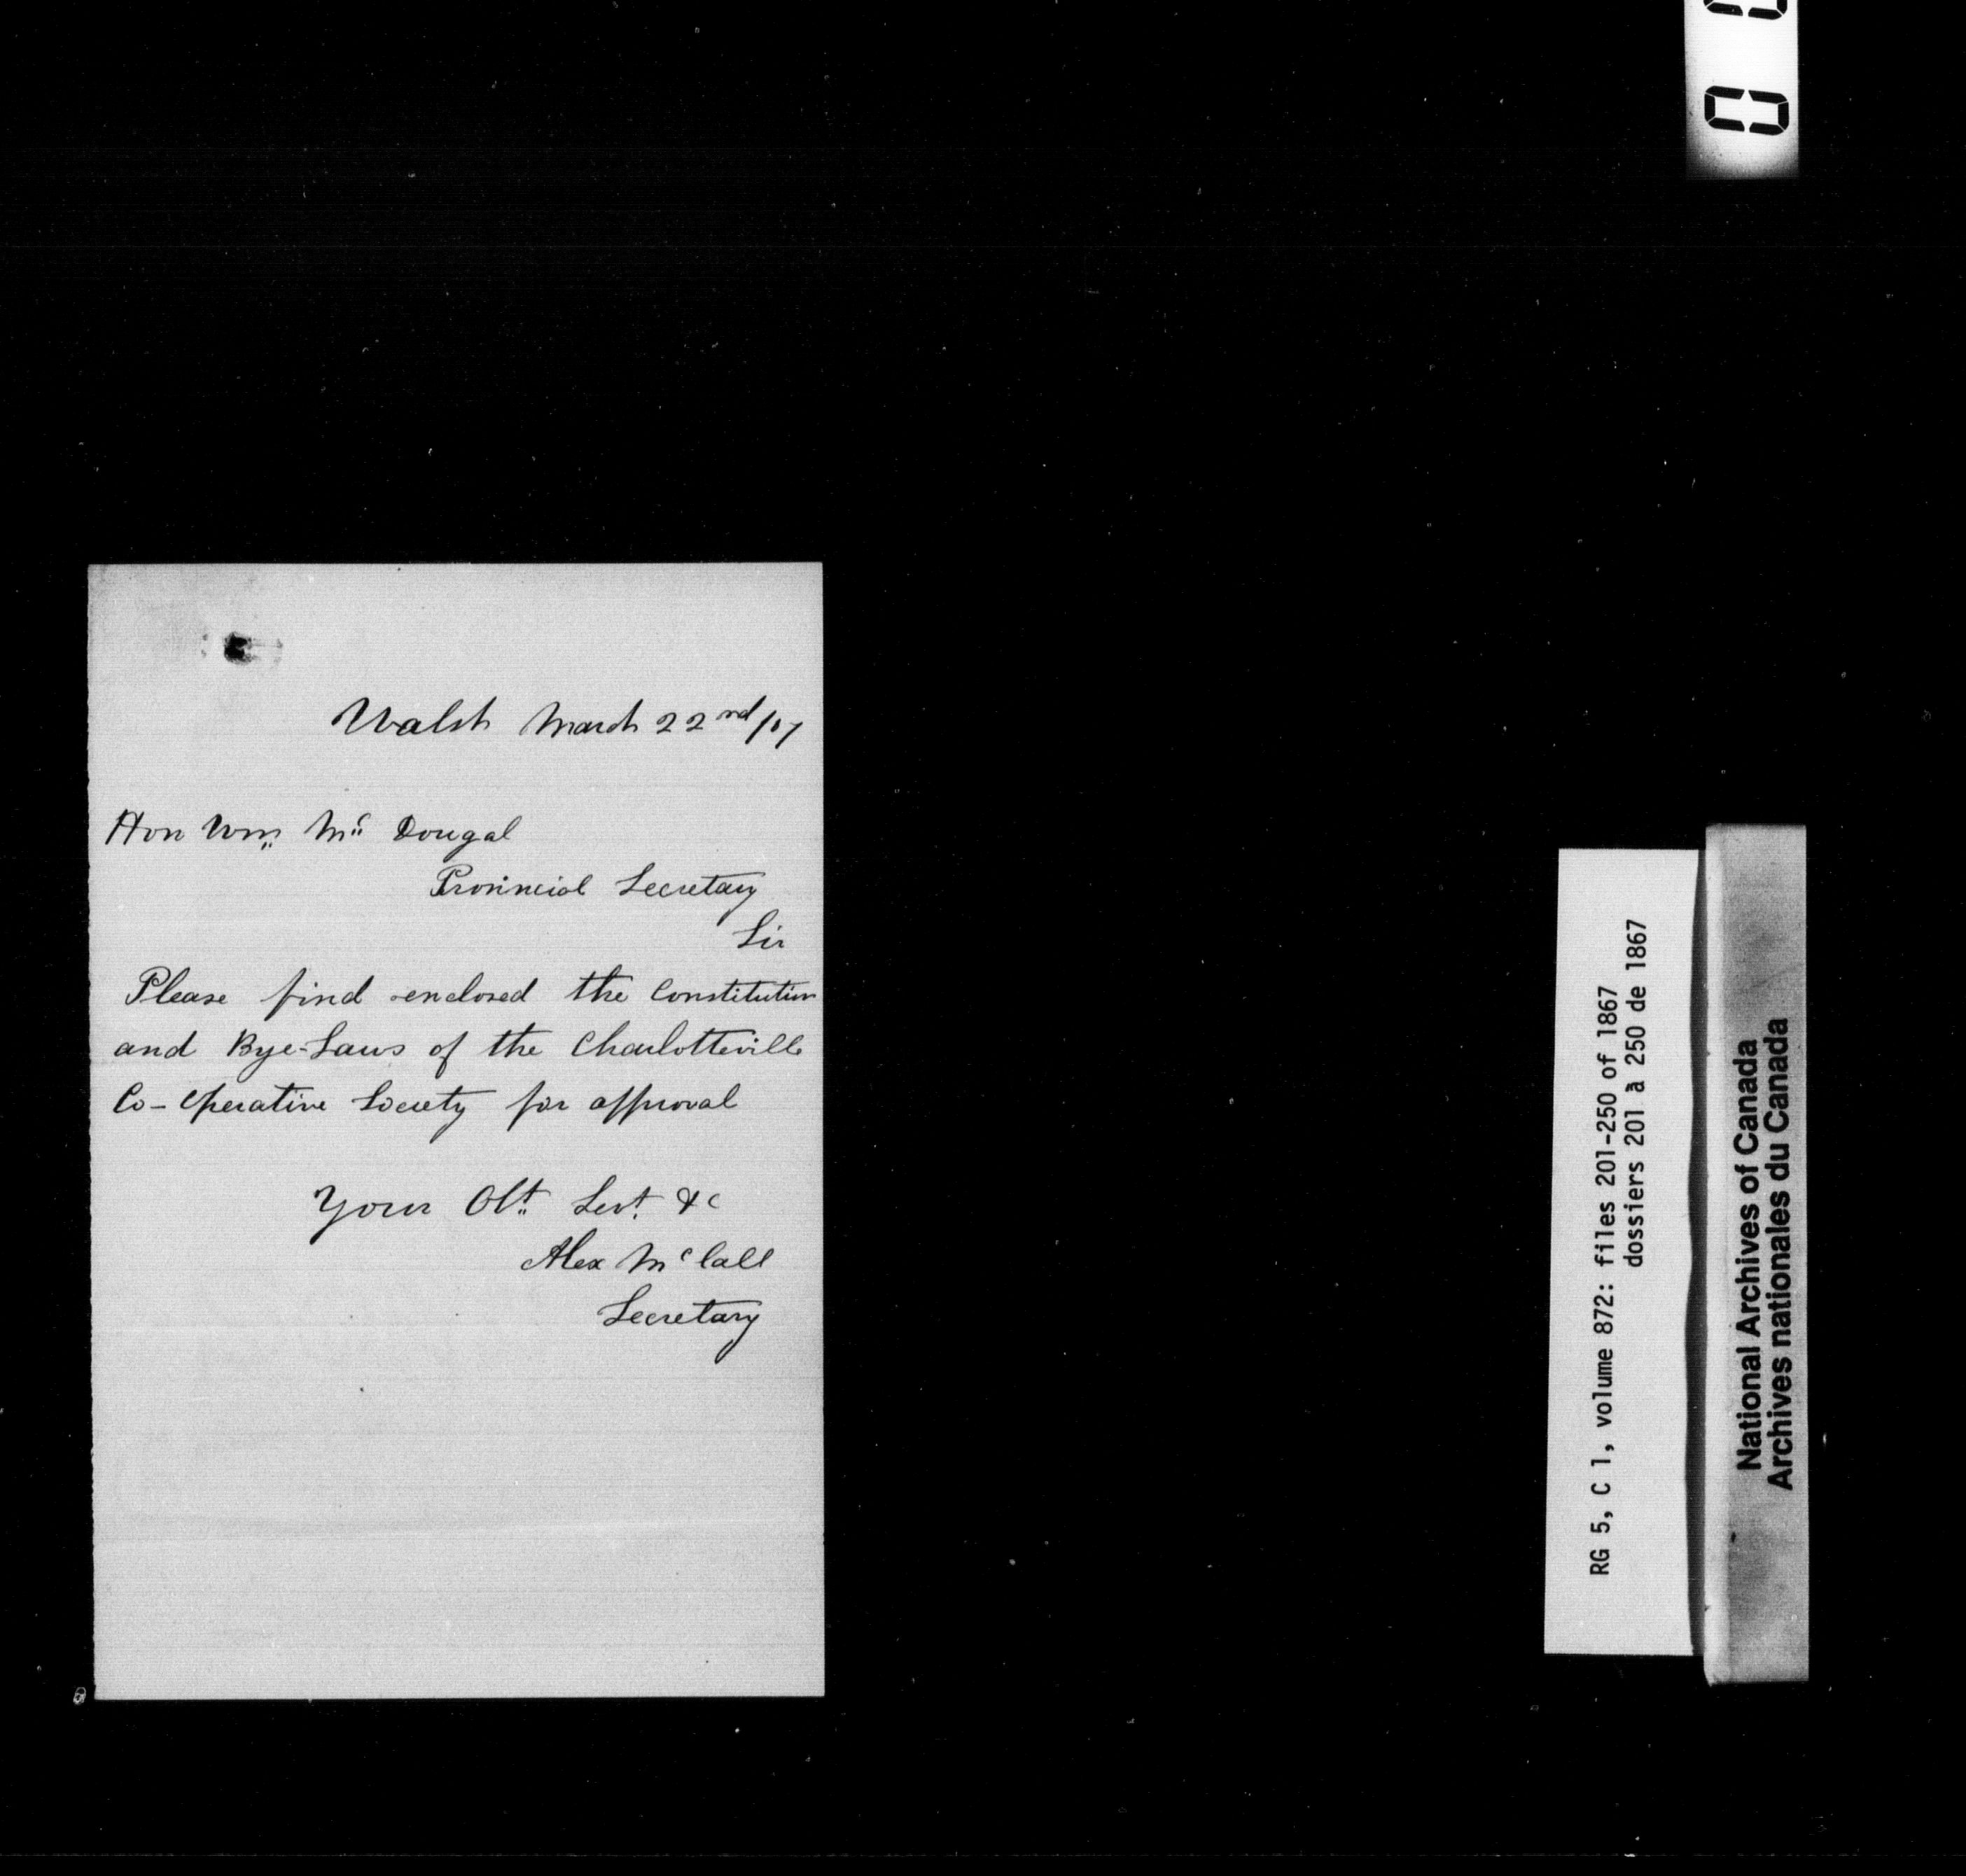 Walsh March 22nd/67
Hon Wm Mc Dougal
Provincial Secretary
Sir
Please find enclosed the Constitution
and Bye-Laws of the Charlotteville
Co-operative Society for approval
Your Obt Servt &c
Alex McCall
Secretary
RG 5, C 1, volume 872: files 201-250 of 1867
dossiers 201 à 250 de 1867
National Archives of Canada
Archives nationales du Canada